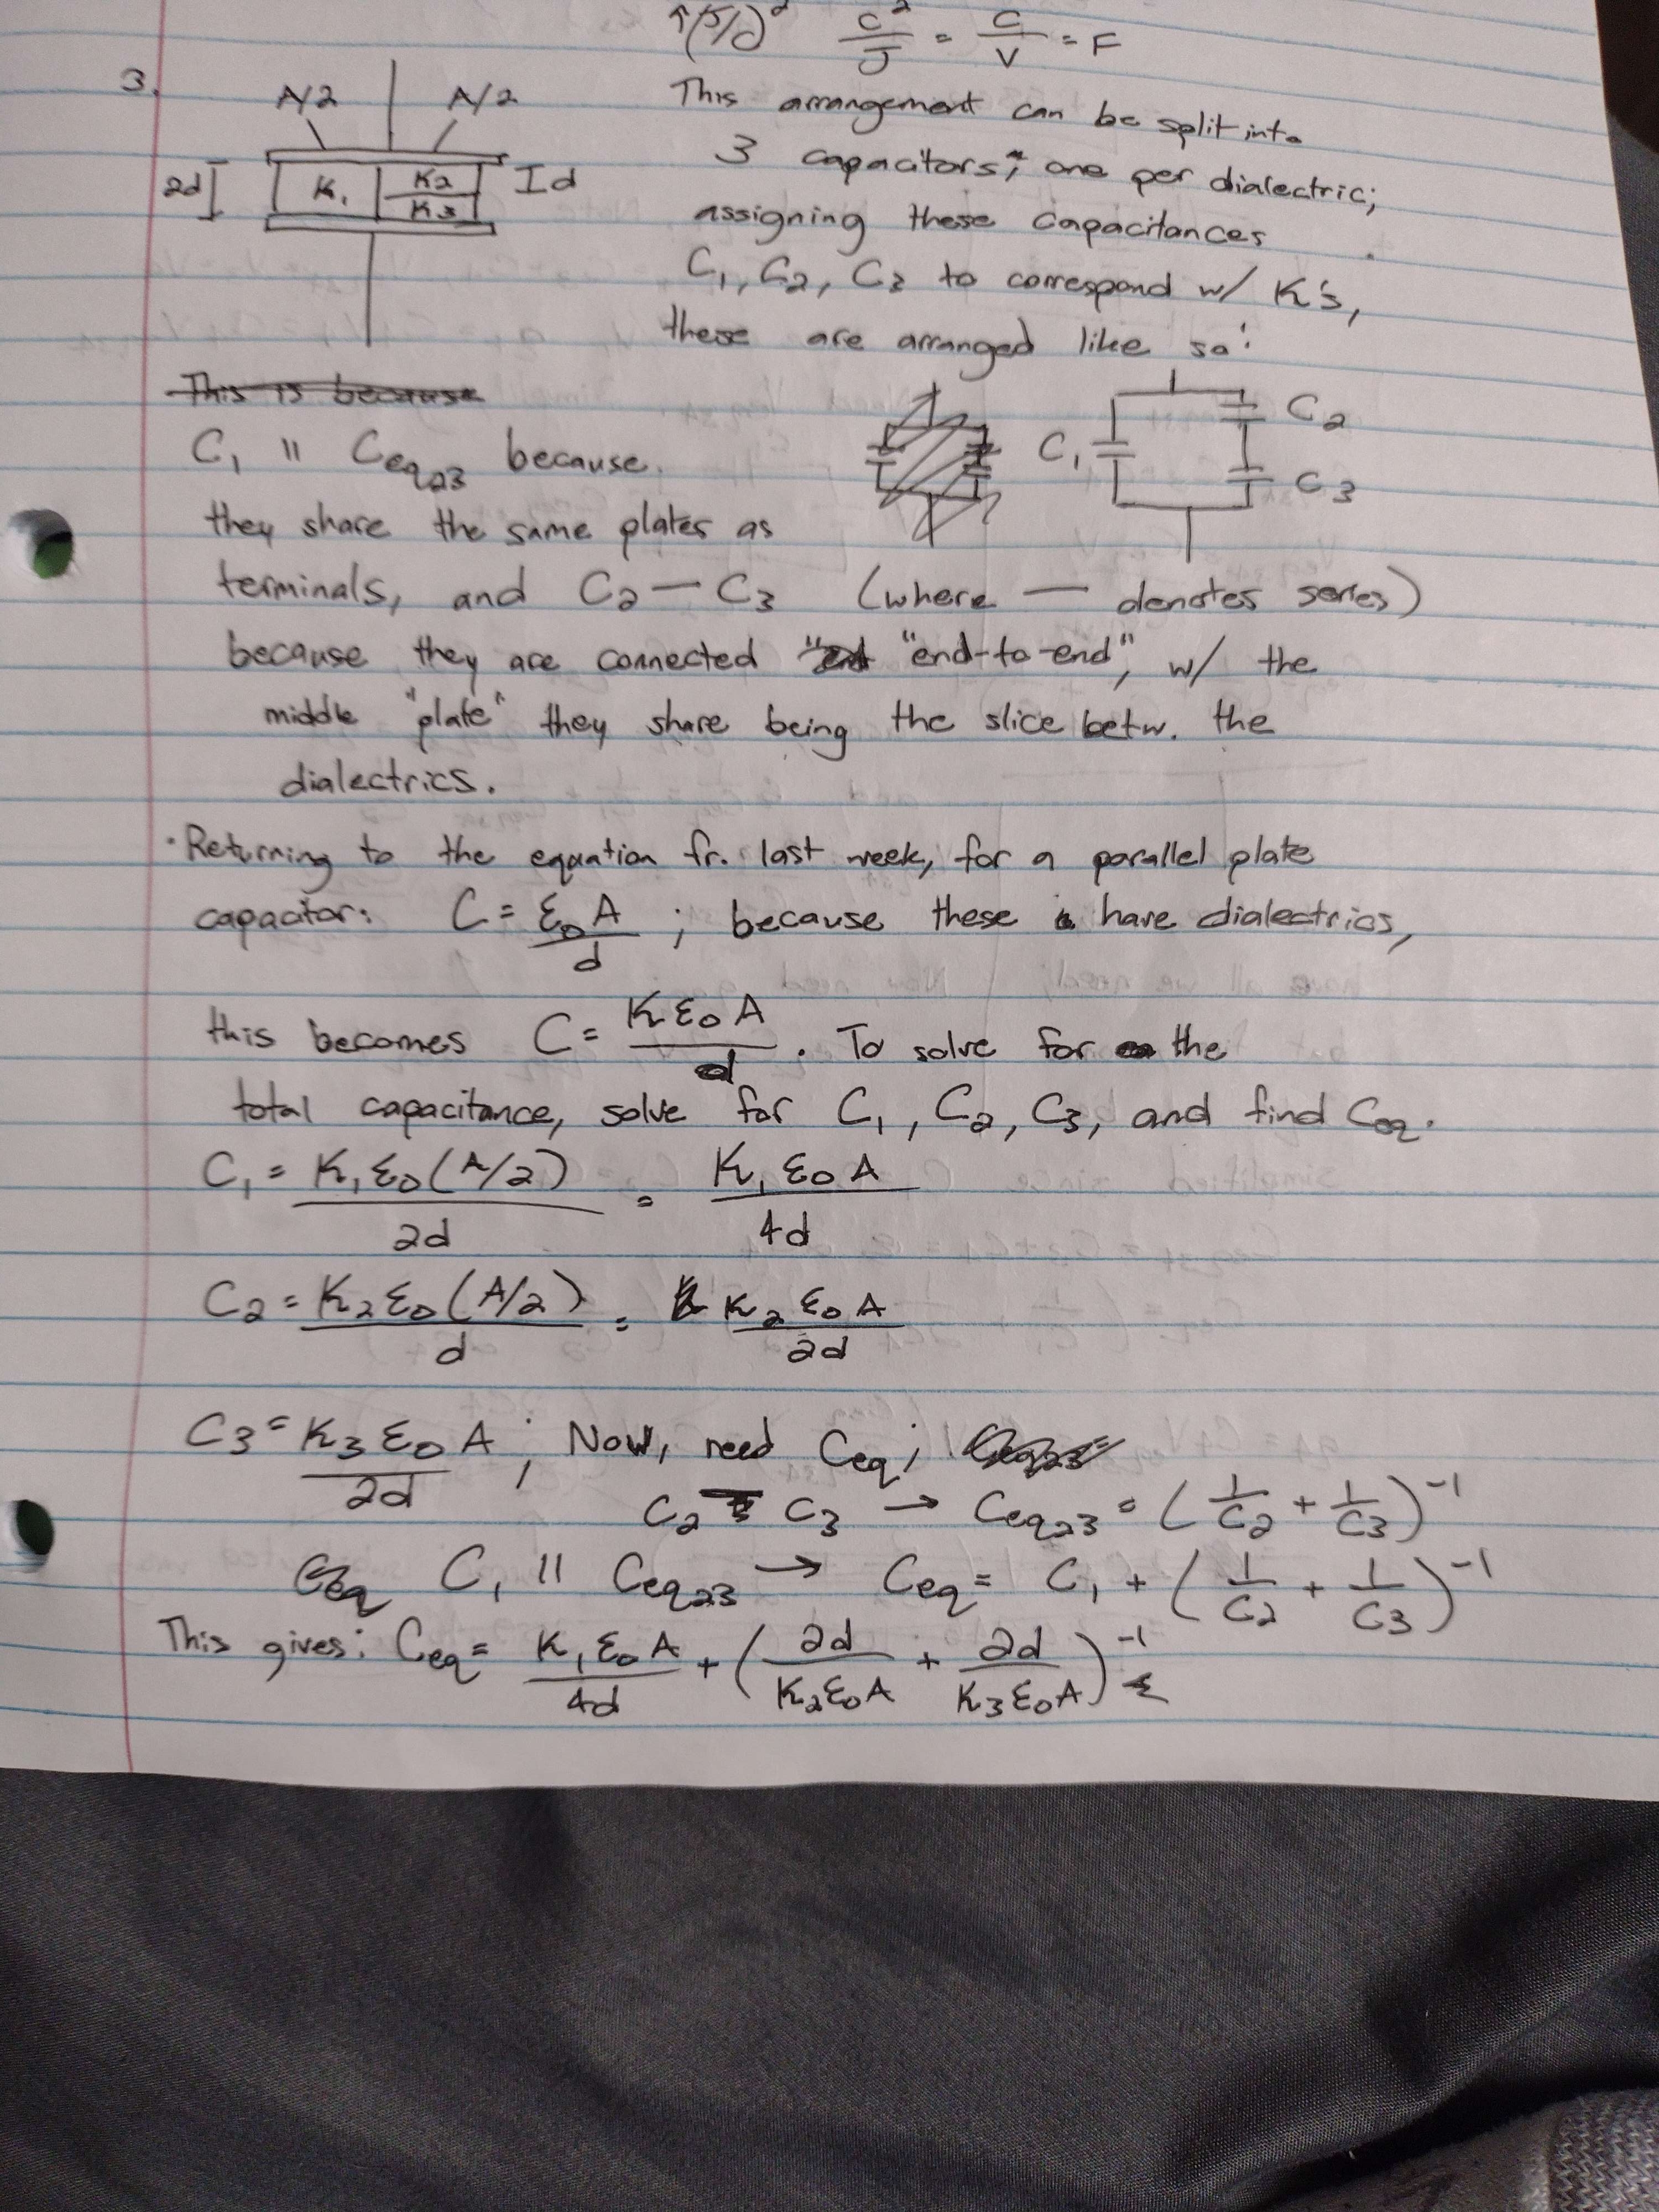 ↑(J/C)² C²/J = C/V = F
3.
A/2 A/2
2d K₁ K2 K3 d
This arrangement can be split into
3 capacitors, one per dialectric;
assigning these capacitances
C₁, C₂, C₃ to correspond w/ K's,
these are arranged like so:
This is because
C₁ C₂ C₃
C₁ || Ceq₂₃ because
they share the same plates as
terminals, and C₂ — C₃ (where — denotes series)
because they are connected "end-to-end", w/ the
middle "plate" they share being the slice betw. the
dialectrics.
· Returning to the equation fr. last week, for a parallel plate
capacitor: C = ε₀A/d ; because these have dialectrics,
this becomes C = Kε₀A/d . To solve for the
total capacitance, solve for C₁, C₂, C₃, and find Ceq.
C₁ = K₁ε₀(A/2)/2d = K₁ε₀A/4d
C₂ = K₂ε₀(A/2)/d = K₂ε₀A/2d
C₃ = K₃ε₀A/2d ; Now, need Ceq;
C₂ — C₃ → Ceq₂₃ = (1/C₂ + 1/C₃)⁻¹
C₁ || Ceq₂₃ → Ceq = C₁ + (1/C₂ + 1/C₃)⁻¹
This gives: Ceq = K₁ε₀A/4d + (2d/K₂ε₀A + 2d/K₃ε₀A)⁻¹